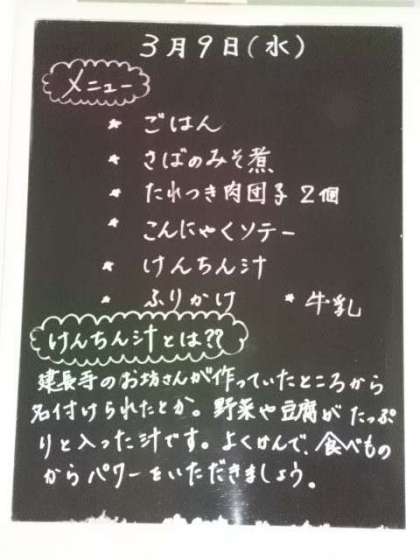 3月9日(水)
メニュー
* ごはん
* さばのみそ煮
* たれつき肉団子 2個
* こんにゃくソテー
* けんちん汁
* ふりかけ * 牛乳
けんちん汁とは??
建長寺のお坊さんが作っていたところから
名付けられたとか。野菜や豆腐がたっぷ
りと入った汁です。よくかんで、食べもの
からパワーをいただきましょう。